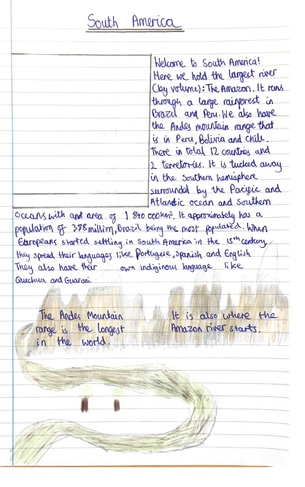 South America
Welcome to South America!
Here we hold the largest river
(by volume): The Amazon. It runs
through a large rainforest in
Brazil and Peru. We also have
the Andes mountain range that
is in Peru, Bolivia and Chile.
There in total 12 countries and
2 territories. It is tucked away
in the Southern hemisphere
surrounded by the Pacific and
Atlantic ocean and Southern
Oceans with and area of
It approximately has a
population of 388 million, Brazil being the most populated. When
Europeans started settling in South America in the 15th century
they spread their languages like Portugese, Spanish and English
They also have their own indiginous language like
Quechua and Guarani
The Andes Mountain
range is the longest
in the world.
It is also where the
Amazon river starts.